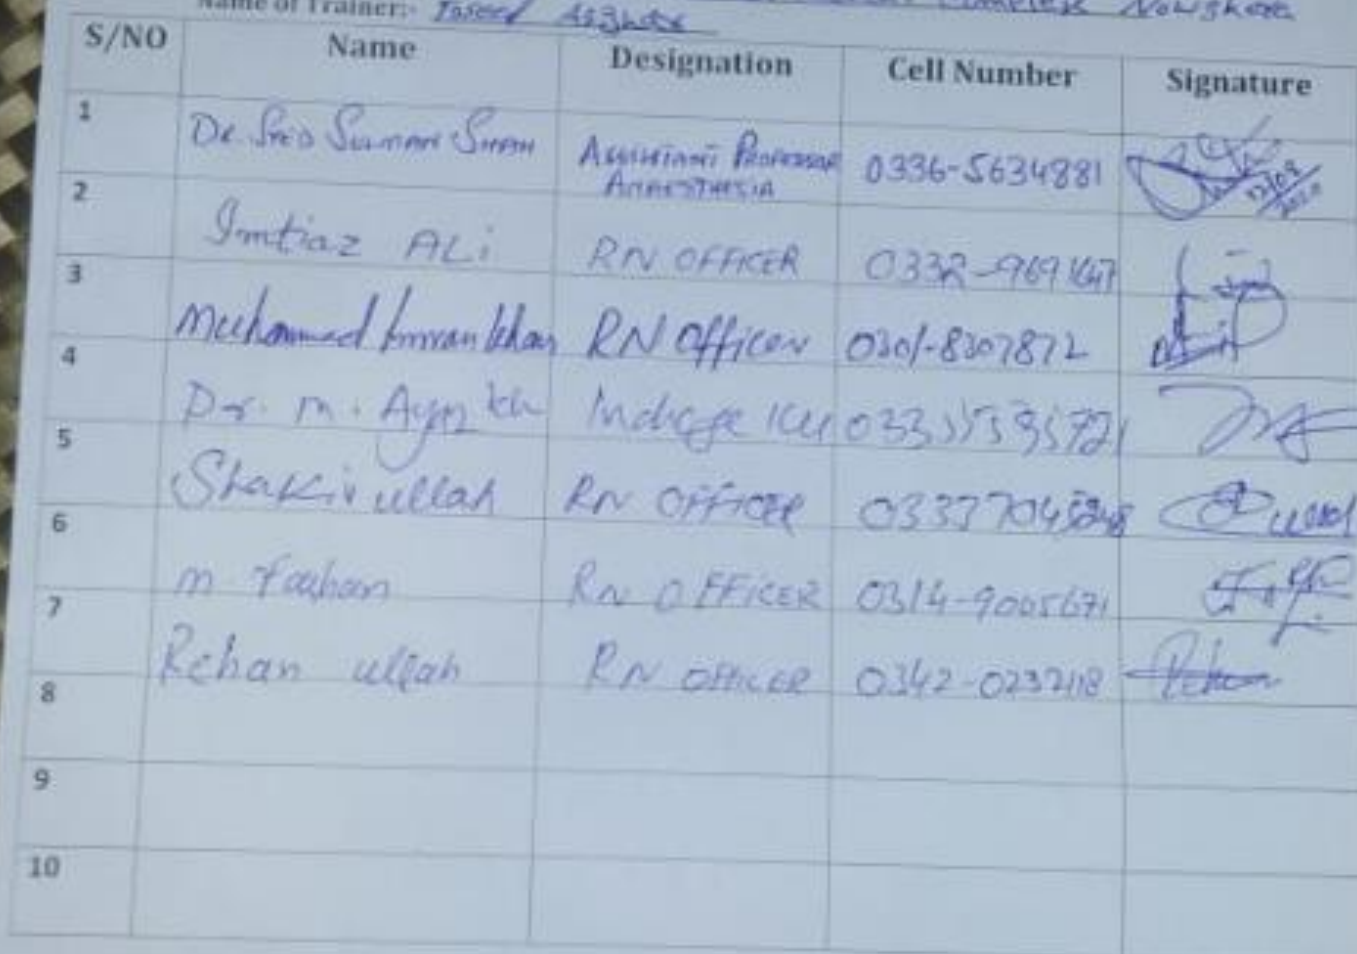 Name of Trainer:- Complex Nowshera
S/NO Name Designation Cell Number Signature
1 Dr. Syed Suliman Shah Assistant Professor Anaesthesia 0336-5634881
2 Imtiaz ALi RN OFFICER 0332-9691647
3 Muhammad Imran khan RN Officer 0301-8307872
4 Dr. M. Ayaz kh Incharge ICU
5 Shakir ullah RN OFFICER
6 m Farhan RN OFFICER 0314-9005671
7 Rehan ullah RN OFFICER 0342-0232118 Rehan
8
9
10